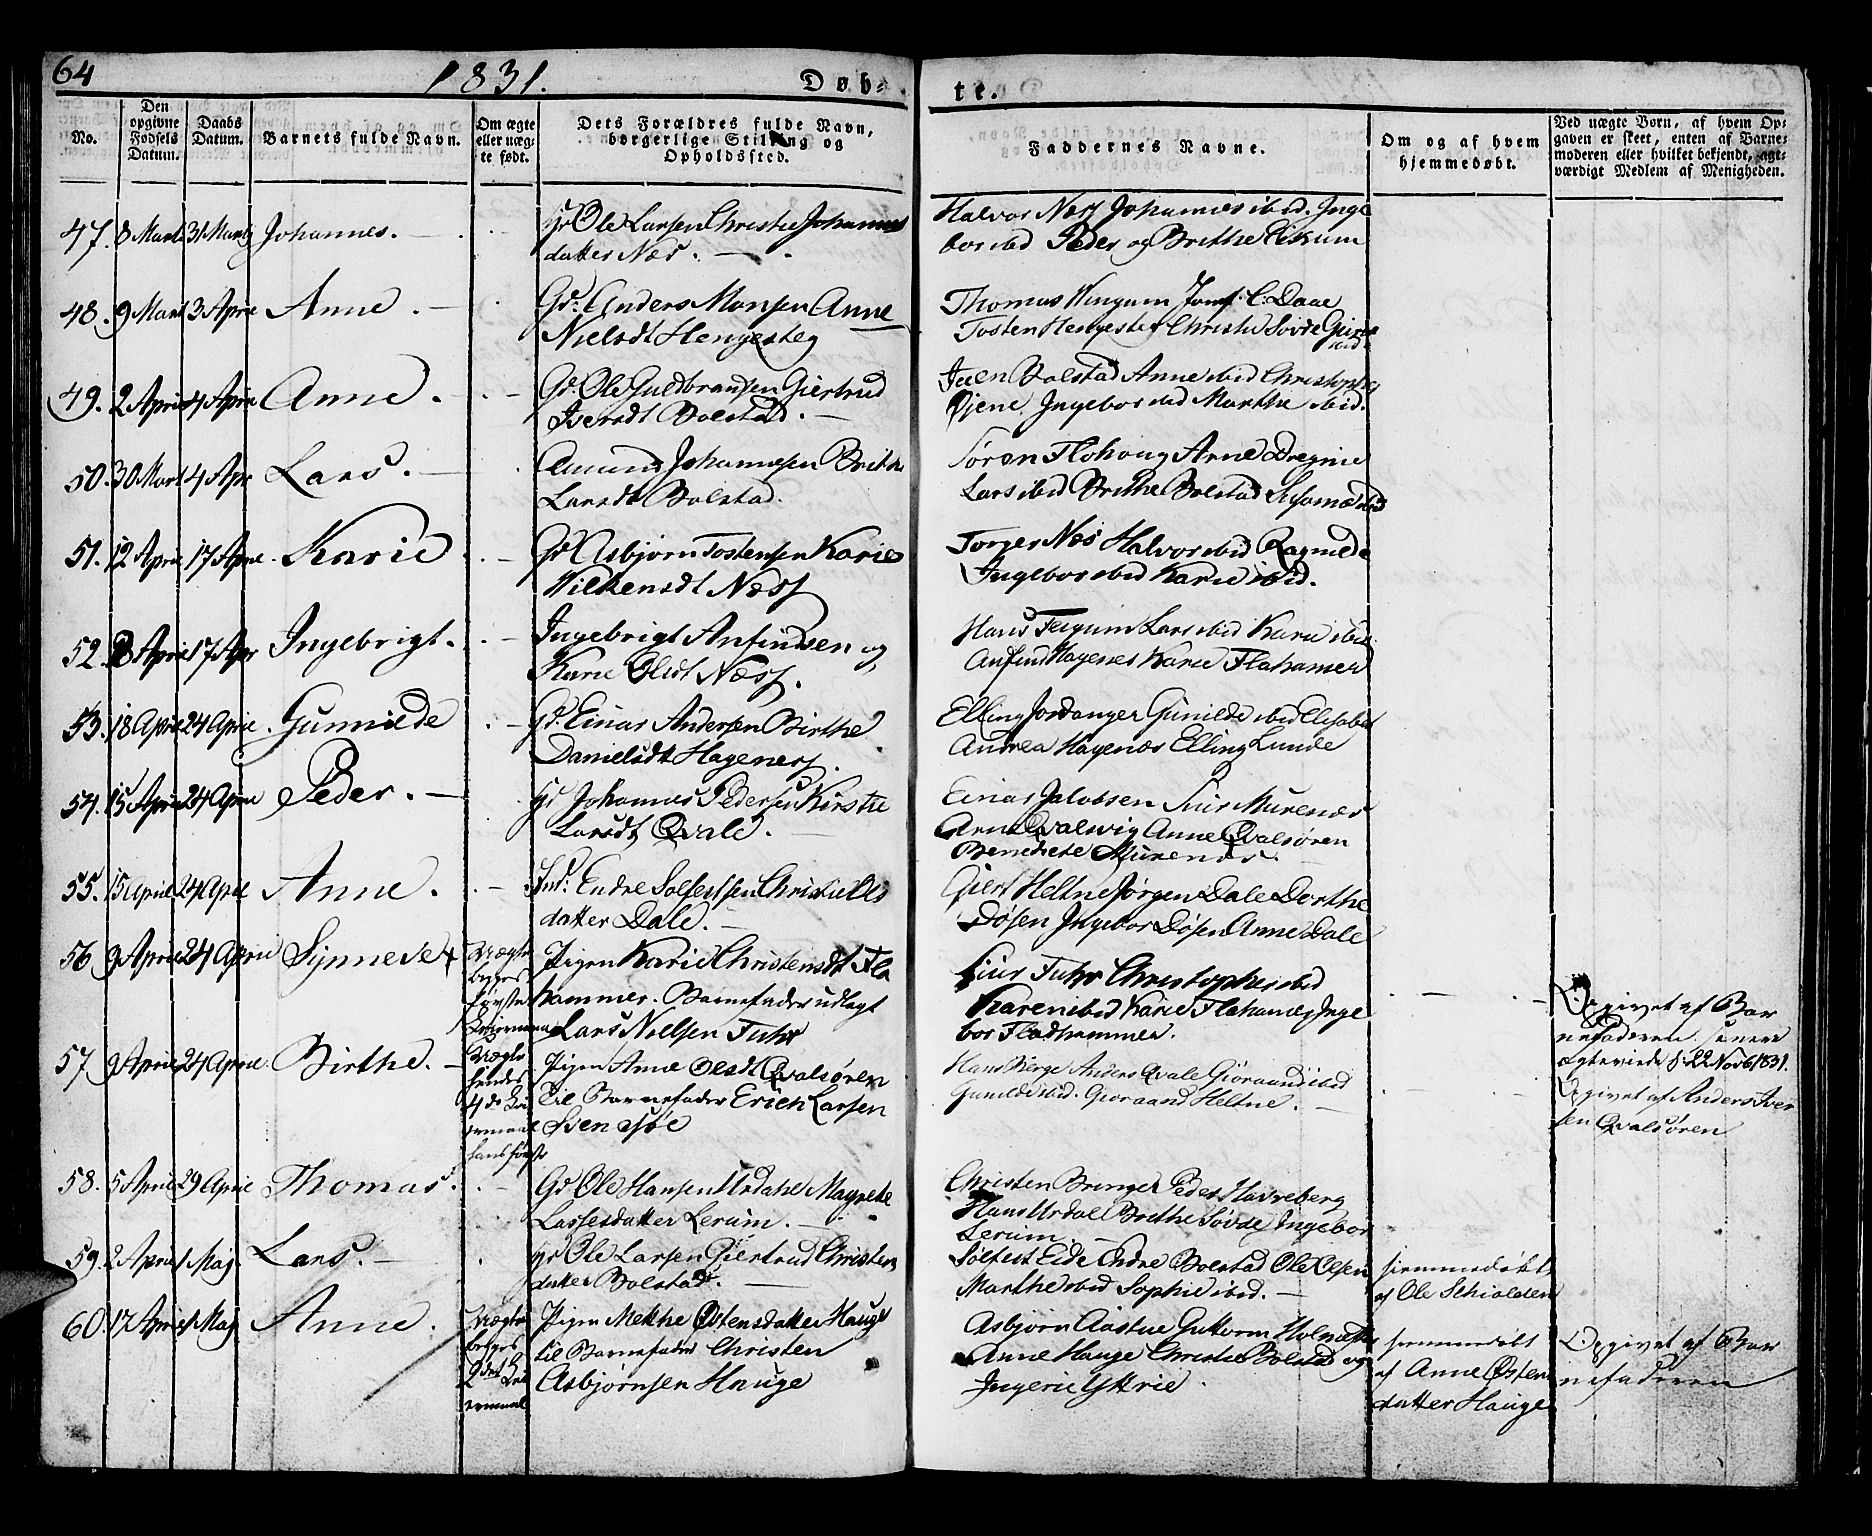 64
1831.
Døb-
te.
No.
Den opgivne Fødsels Datum.
Daabs Datum.
Barnets fulde Navn.
Om ægte eller uægte født.
Dets Forældres fulde Navn, borgerlige Stilling og Opholdssted.
Faddernes Navne.
Om og af hvem hjemmedøbt.
Ved uægte Born, af hvem Opgaven er skeet, enten af Barnemoderen eller hvilket bekjendt, agtværdigt Medlem af Menigheden.
47. 8 Marti 31 Marti Johannes. Gr Ole Larsen Christie Johannes
datter Næs.
Halvor Næss Johannes ibid. Inge
bor ibid Peder og Brithe Eikum
48. 9 Marti 3 April Anne. Gd: Anders Monsen Anne
Nielsdt Hengesteg
Thomas Wingum Jomf. C: Daae
Tosten Hengesteg Christie Søvde
ibid
49. 2 April 4 April Anne. Gd: Ole Guldbransen Giertrud
Iversdt Bolstad.
Iven Bolstad Anne ibid Christopher
Øjene Ingebor ibid Marthe ibid.
50. 30 Mart 4 Apr Lars. Amund Johannesen Brithe
Larsdt Bolstad.
Søren Flohoug Arne Dregnie
Lars ibid Brithe Bolstad ibid
51. 12 April 17 April Karie Gd Asbjørn Tostensen Karie
Wilkensdt Næss
Torger Næs Halvor ibid Ragnilde
Ingebor ibid Karie ibid.
52. 8 April 17 Apr Ingebrigt. Ingebrigt Anfindsen og
Karie Olsdt Næss.
Hans Feigum Lars ibid Karie ibid
Anfind Hagenes Karie Flahamer
53. 18 April 24 April Gunnilde Gd: Einar Andersen Birthe
Danielsdt Hageness.
Elling Jordanger Gunilde ibid Elisabet
Andrea Hagenæs Elling Lunde
54. 15 April 24 April Peder. Gd Johannes Pedersen Kirstie
Larsdt Qvale.
Einar Jacobsen Siur Murenæs
Arne Qvalevig Anne Qvalsøren
Benedicte Murenæs
55. 15 April 24 April Anne. Ind: Endre Solfestsen Christie Ols
datter Dale.
Giert Heltne Jørgen Dale Dorthe
Døsen Ingebor Døsen Anne Dale
56 9 April 24 April Synneve + Uægte
begges
første
Leiermaal
Pigen Karie Christensdt Fla
hammer. Barnefader udlagt
Lars Nielsen Fuhr
Siur Fuhr Christopher ibid
Karen ibid Karie Flahamer Inge
bor Fladhammer.
Opgivet af Bar
nefaderen. senere
ægteviede d: 22 Nov 1831.
57. 9 April 24 April. Birthe. Uægte
hendes
4de Lei
ermaal
hans første
Pigen Anne Olsdt Qvalsøren
til Barnefader Erich Larsen
Svensøe
Hans Berge Anders Qvale Gioraand ibid
Gunilde ibid. Gioraand Heltne.
Opgivet af Anders Iver
sen Qvalsøren
58. 5 April 29 April Thomas. Gd Ole Hansen Urdahl Magrete
Lassesdatter Lerum.
Christen Bringe Peder Havreberg
Hans Urdal Brithe Søvde Ingebor
Lerum.
59. 2 April 1 Maj. Lars. Gr Ole Larsen Giertrud Christens
datter Bolstad.
Solfest Eide Endre Bolstad Ole Olsen
Marthe ibid Sophie ibid.
hiemmedøbt
af Ole Schiolden
60. 17 April 1 Maj Anne. Uægte
begges
2det Lei
ermaal
Pigen Mekthe Østensdatter Hauge
til Barnefader Christen
Asbjørnsen Hauge
Asbjørn Aastue Guttorm
Anne Hauge Christie Bolstad og
Ingerie Yttrie.
hiemmedøbt
af Anne Østens
datter Hauge
Opgivet af Bar
nefaderen